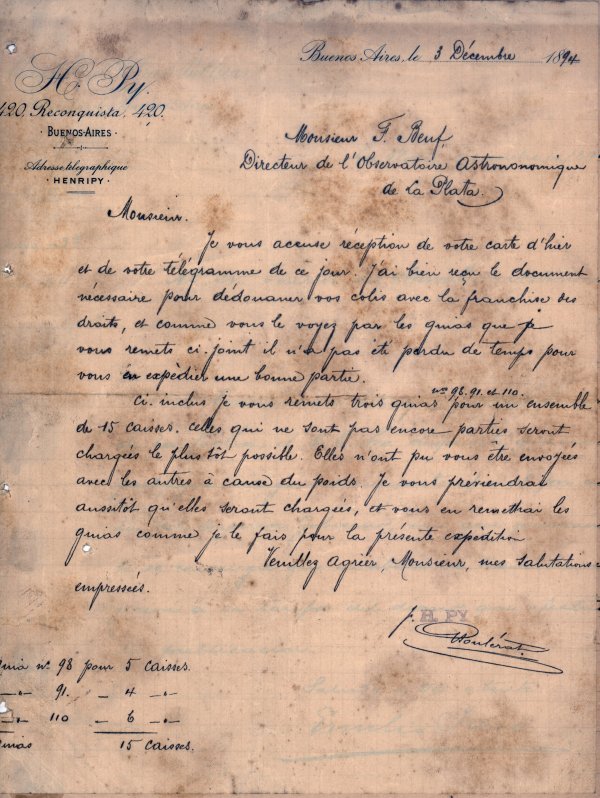 H. Py.
420. Reconquista. 420.
BUENOS-AIRES
Adresse télégraphique
HENRIPY
Buenos Aires, le 3 Décembre 1894
Monsieur F. Beuf.
Directeur de l'Observatoire Astronomique
de La Plata.
Monsieur.
Je vous accuse réception de votre carte d'hier
et de votre télégramme de ce jour. J'ai bien reçu le document
nécessaire pour dédouaner vos colis avec la franchise des
droits, et comme vous le voyez par les guias que je
vous remets ci-joint il n'a pas été perdu de temps pour
vous en expédier une bonne partie.
nos 98. 91. et 110.
Ci-inclus je vous remets trois guias pour un ensemble
de 15 caisses. celles qui ne sont pas encore parties seront
chargées le plus tôt possible. Elles n'ont pu vous être envoyées
avec les autres à cause du poids. Je vous préviendrai
aussitôt qu'elles seront chargées, et vous en remettrai les
guias comme je le fais pour la présente expédition
Veuillez agréer, Monsieur, mes salutations
empressées.
p. H. PY
Guia no. 98 pour 5 caisses.
-"- 91. - 4 -"-
-"- 110 - 6 -"-
Guias 15 caisses.